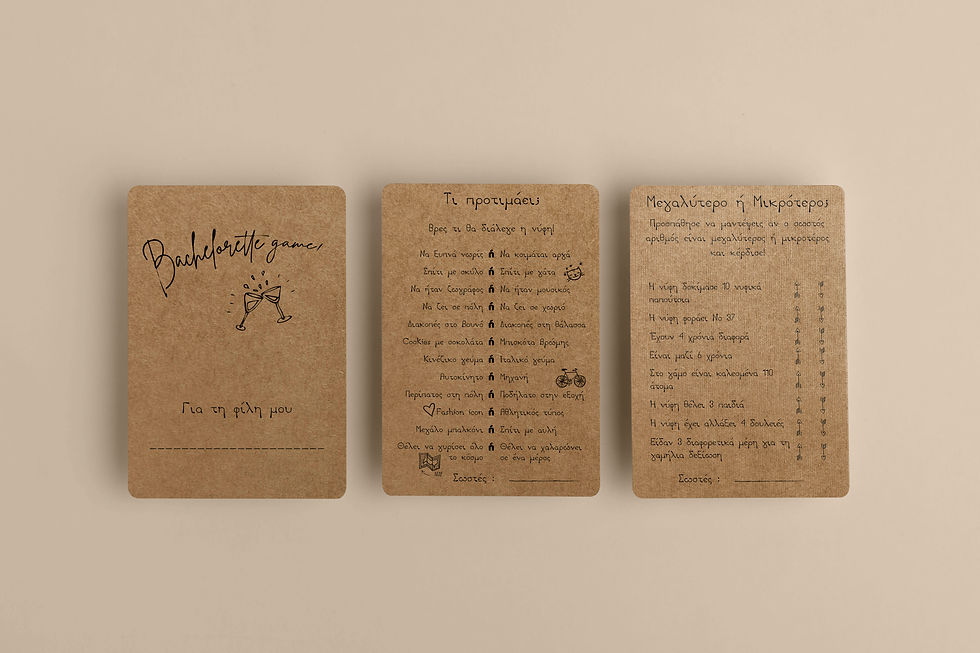 Bachelorette games
Για τη φίλη μου
Τι προτιμάει;
Βρες τι θα διάλεγε η νύφη!
Να ξυπνά νωρίς ή Να κοιμάται αργά
Σπίτι με σκύλο ή Σπίτι με γάτα
Να ήταν ζωγράφος ή Να ήταν μουσικός
Να ζει σε πόλη ή Να ζει σε χωριό
Διακοπές στο Βουνό ή Διακοπές στη θάλασσα
Cookies με σοκολάτα ή Μπισκότα Βρώμης
Κινέζικο γεύμα ή Ιταλικό γεύμα
Αυτοκίνητο ή Μηχανή
Περίπατος στη πόλη ή Ποδήλατο στην εξοχή
Fashion icon ή Αθλητικός τύπος
Μεγάλο μπαλκόνι ή Σπίτι με αυλή
Θέλει να γυρίσει όλο ή Θέλει να χαλαρώνει
το κόσμο σε ένα μέρος
Σωστές :
Μεγαλύτερο ή Μικρότερο;
Προσπάθησε να μαντέψεις αν ο σωστός
αριθμός είναι μεγαλύτερος ή μικρότερος
και κέρδισε!
Η νύφη δοκίμασε 10 νυφικά
παπούτσια
Η νύφη φοράει Νο 37
Έχουν 4 χρόνια διαφορά
Είναι μαζί 6 χρόνια
Στο γάμο είναι καλεσμένα 110
άτομα
Η νύφη θέλει 3 παιδιά
Η νύφη έχει αλλάξει 4 δουλειές
Είδαν 3 διαφορετικά μέρη για τη
γαμήλια δεξίωση
Σωστές :